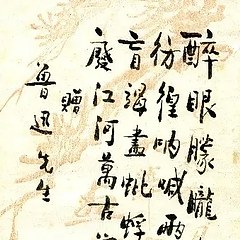 醉眼朦朧
彷徨呐喊兩
盲竭盡蚍蜉
廢江河萬古
贈
魯迅先生